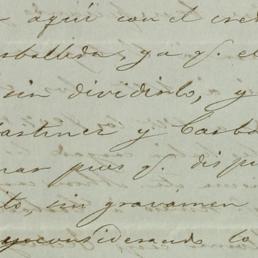 aquí con el cred
Carballeda, ya q. el
sin dividirlo, y
Martinez y Carba
nar pues q. disp
to, sin gravámen
y considerando lo